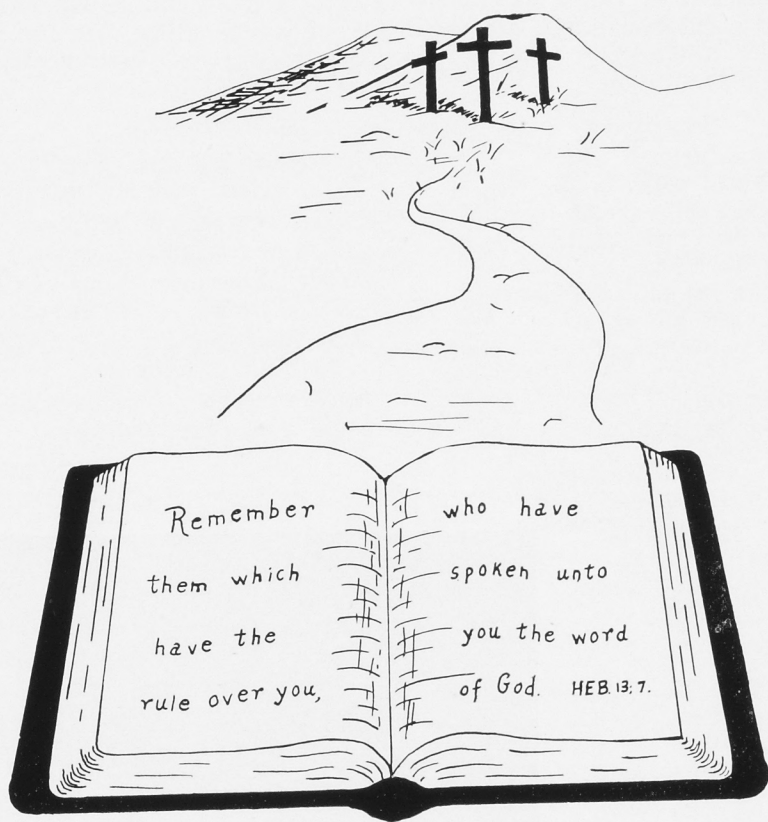 Remember
them which
have the
rule over you,
who have
spoken unto
you the word
of God. HEB. 13:7.